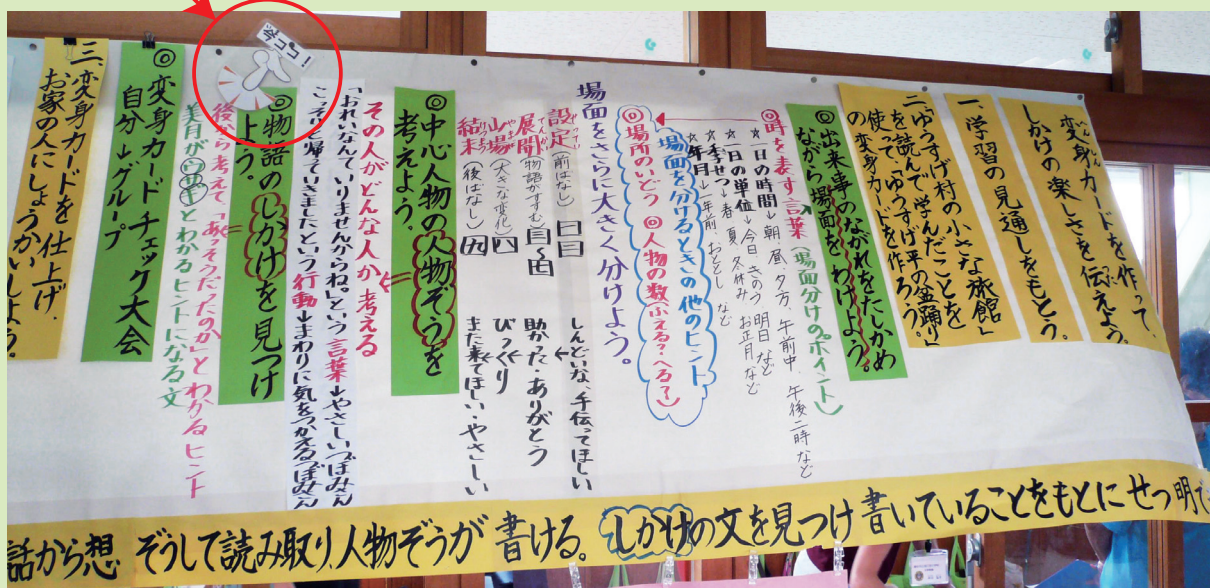 変身カードを作って、
しかけの楽しさを伝えよう。
一、学習の見通しをもとう。
二、「ゆうすげ村の小さな旅館」
を読んで学んだことを
使って「ゆうすげ平の盆踊り」
の変身カードを作ろう。
◎出来事のながれをたしかめ
ながら場面をわけよう。
(場面分けのポイント)
◎時を表す言葉
☆一日の時間→朝、昼、夕方、午前中、午後二時など
☆一日の単位→今日 きのう 明日 など
☆季せつ→春 夏 冬休み お正月など
☆年月→一年前、おととし など
場面を分けるときの他のヒント
◎場所のいどう ◎人物の数(ふえる?へる?)
場面をさらに大きく分けよう。
設定(前ばなし)一 二
しんどいな、手伝ってほしい
展開 物語がすすむ 三〜七
助かった・ありがとう
山場(大きな変化)八
びっくり
結末(後ばなし)九
また来てほしい・やさしい
◎中心人物の人物ぞうを
考えよう。
その人がどんな人か考える
「おれいなんていりませんからね。」という言葉→やさしいつぼみさん
こっそりと帰っていきましたという行動→まわりに気をつかえるつぼみさん
今ココ!
◎物語のしかけを見つけ
よう。
後から考えて「あっそうだったのか」とわかるヒント
美月がウサギとわかるヒントになる文
◎変身カードチェック大会
自分→グループ
三、変身カードを仕上げ、
お家の人にしょうかいしよう。
話から想ぞうして読み取り、人物ぞうが書ける。しかけの文を見つけ書いていることをもとにせつ明で